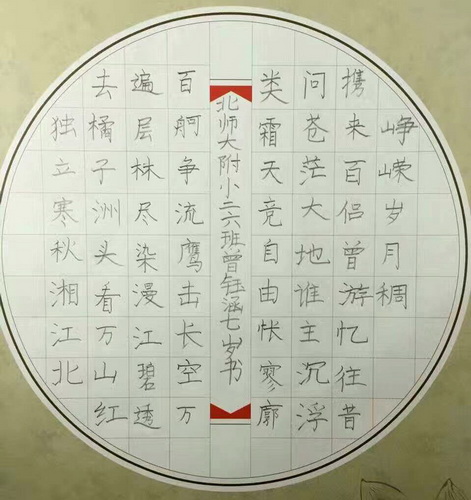 独立寒秋湘江北
去橘子洲头看万山红
遍层林尽染漫江碧透
百舸争流鹰击长空万
北师大附小二六班曾钰涵七岁书
类霜天竞自由怅寥廓
问苍茫大地谁主沉浮
携来百侣曾游忆往昔
峥嵘岁月稠